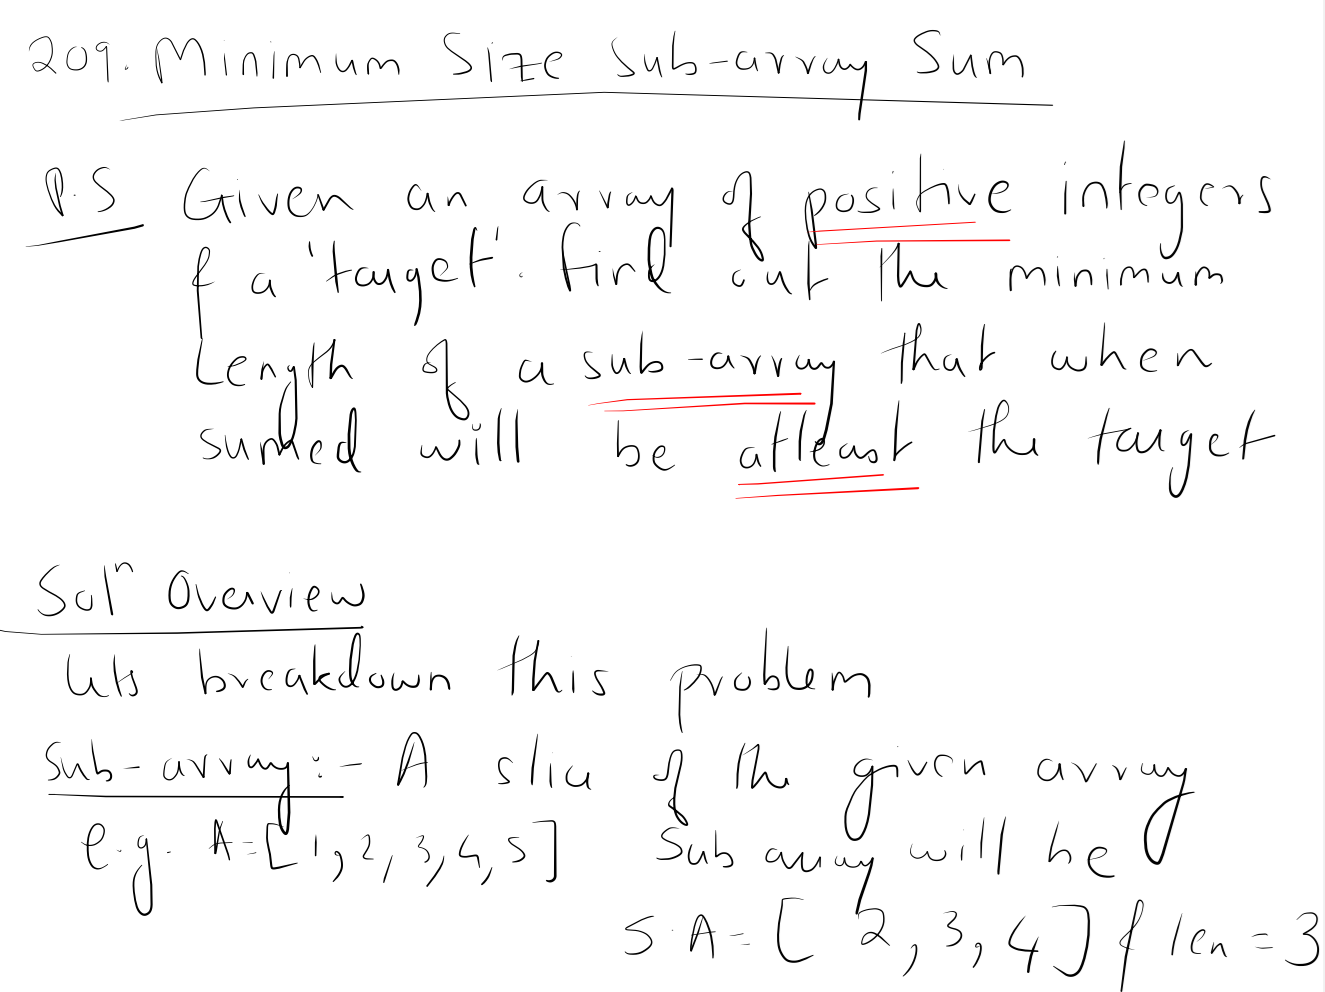 209. Minimum Size Sub-array Sum
P.S Given an array of positive integers
& a 'target'. find out the minimum
Length of a sub-array that when
sumed will be atleast the target
Solⁿ Overview
Lets breakdown this problem
Sub-array :- A slice of the given array
e.g. A=[1,2,3,4,5] Sub array will be
S.A=[2,3,4] & len=3